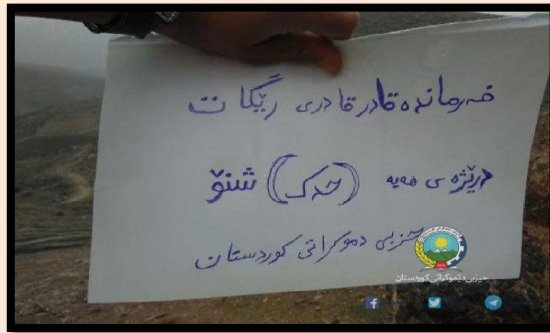 فەرماندە قادر قادری رێگات
درێژەی هەیە (حدک) شنۆ
حزبی دموکراتی کوردستان
حیزبی دێموکراتی کوردستان